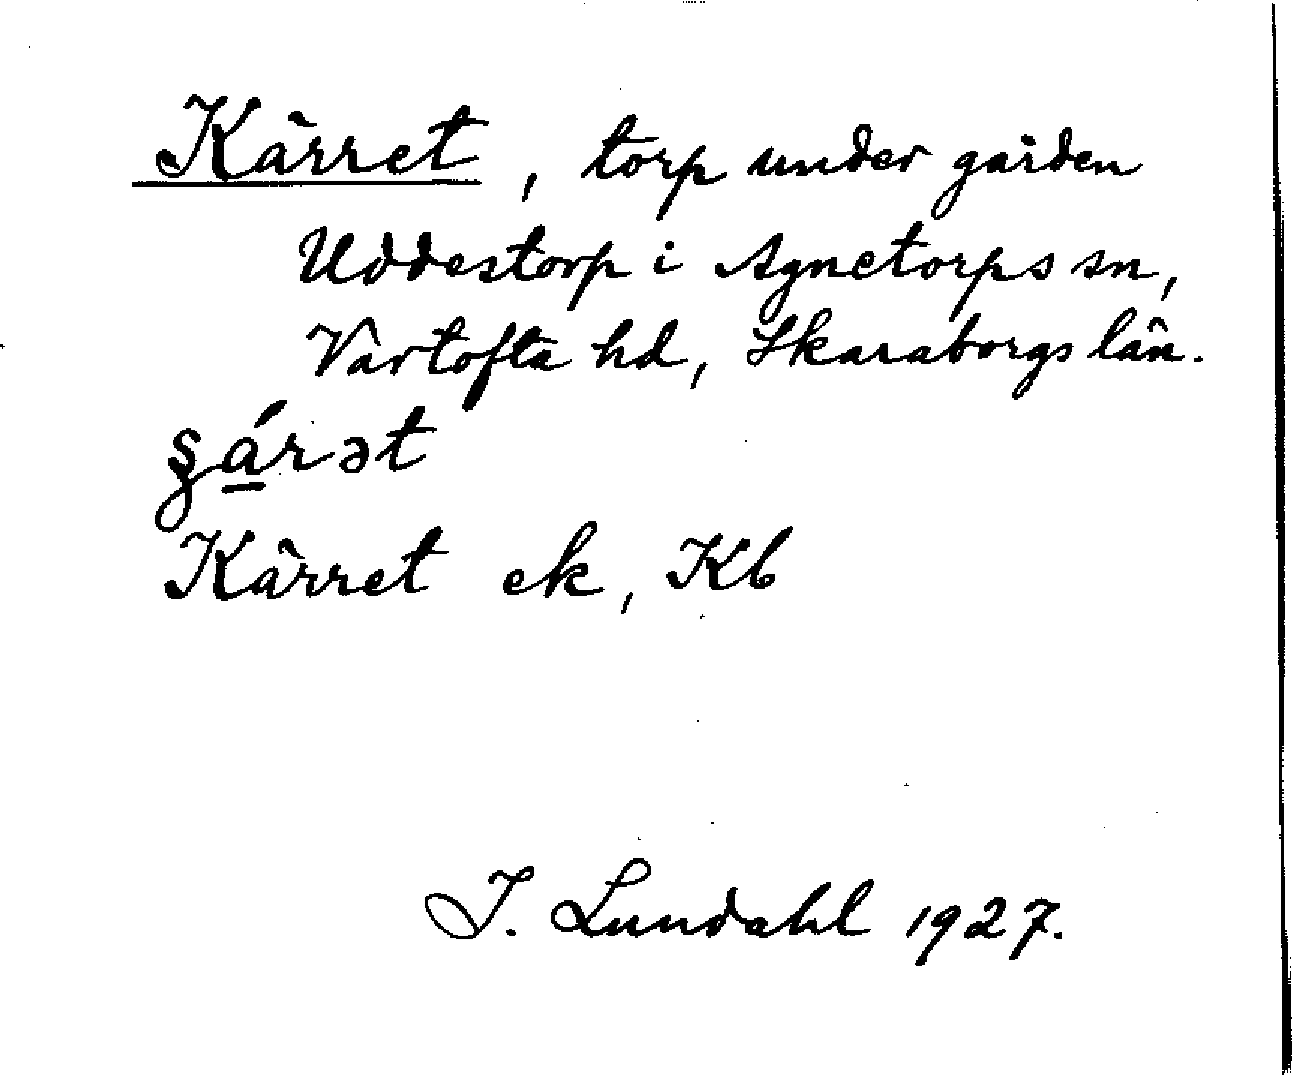 Kärret, torp under gården
Uddestorp i Agnetorps sn,
Vartofta hd, Skaraborgs län.
Kärret ek, Kb
I. Lundahl 1927.